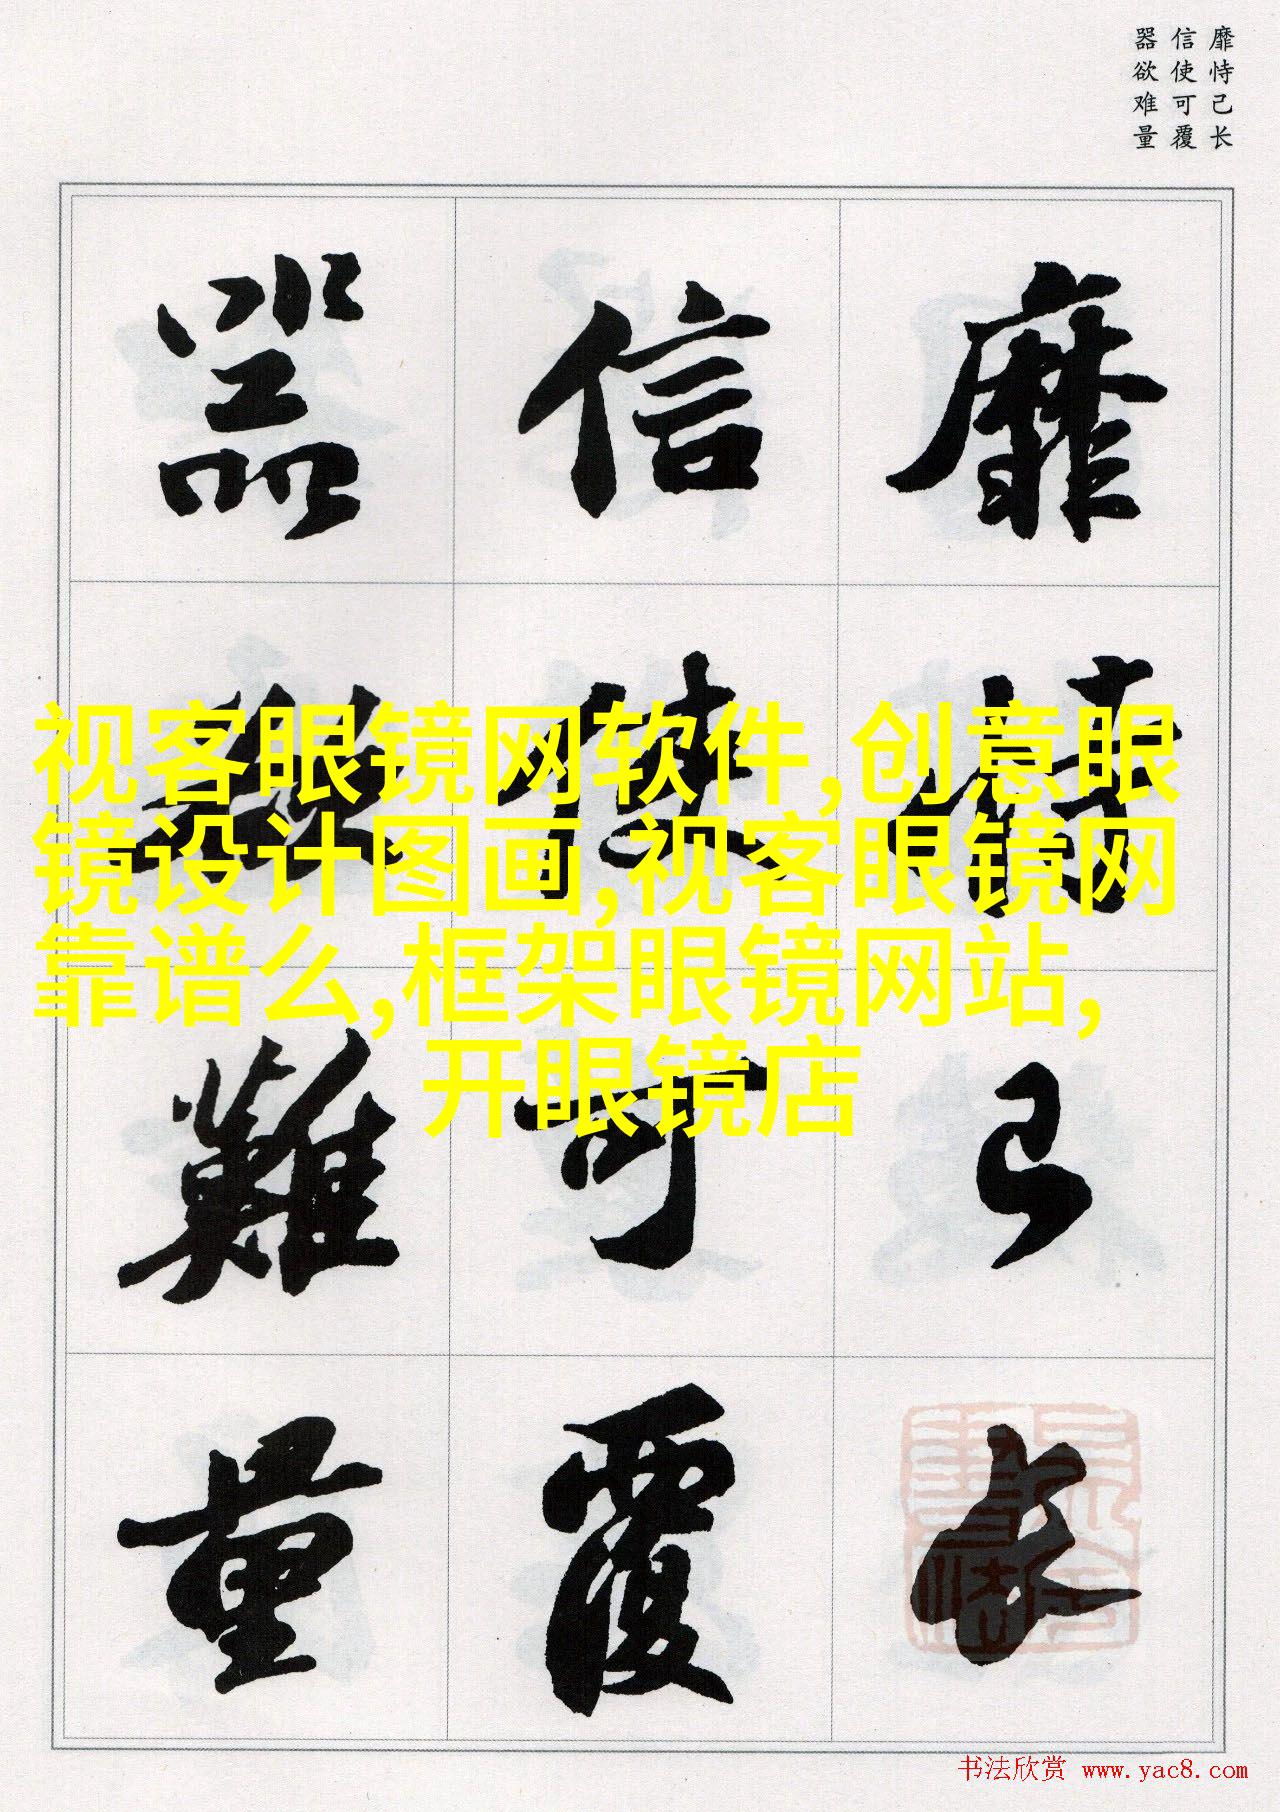 靡恃己长
信使可覆
器欲难量
靡恃己长
信使可覆
器欲難量
视客眼镜网软件,创意眼
镜设计图画,视客眼镜网
靠谱么,框架眼镜网站,
开眼镜店
书法欣赏 www.yac8.com